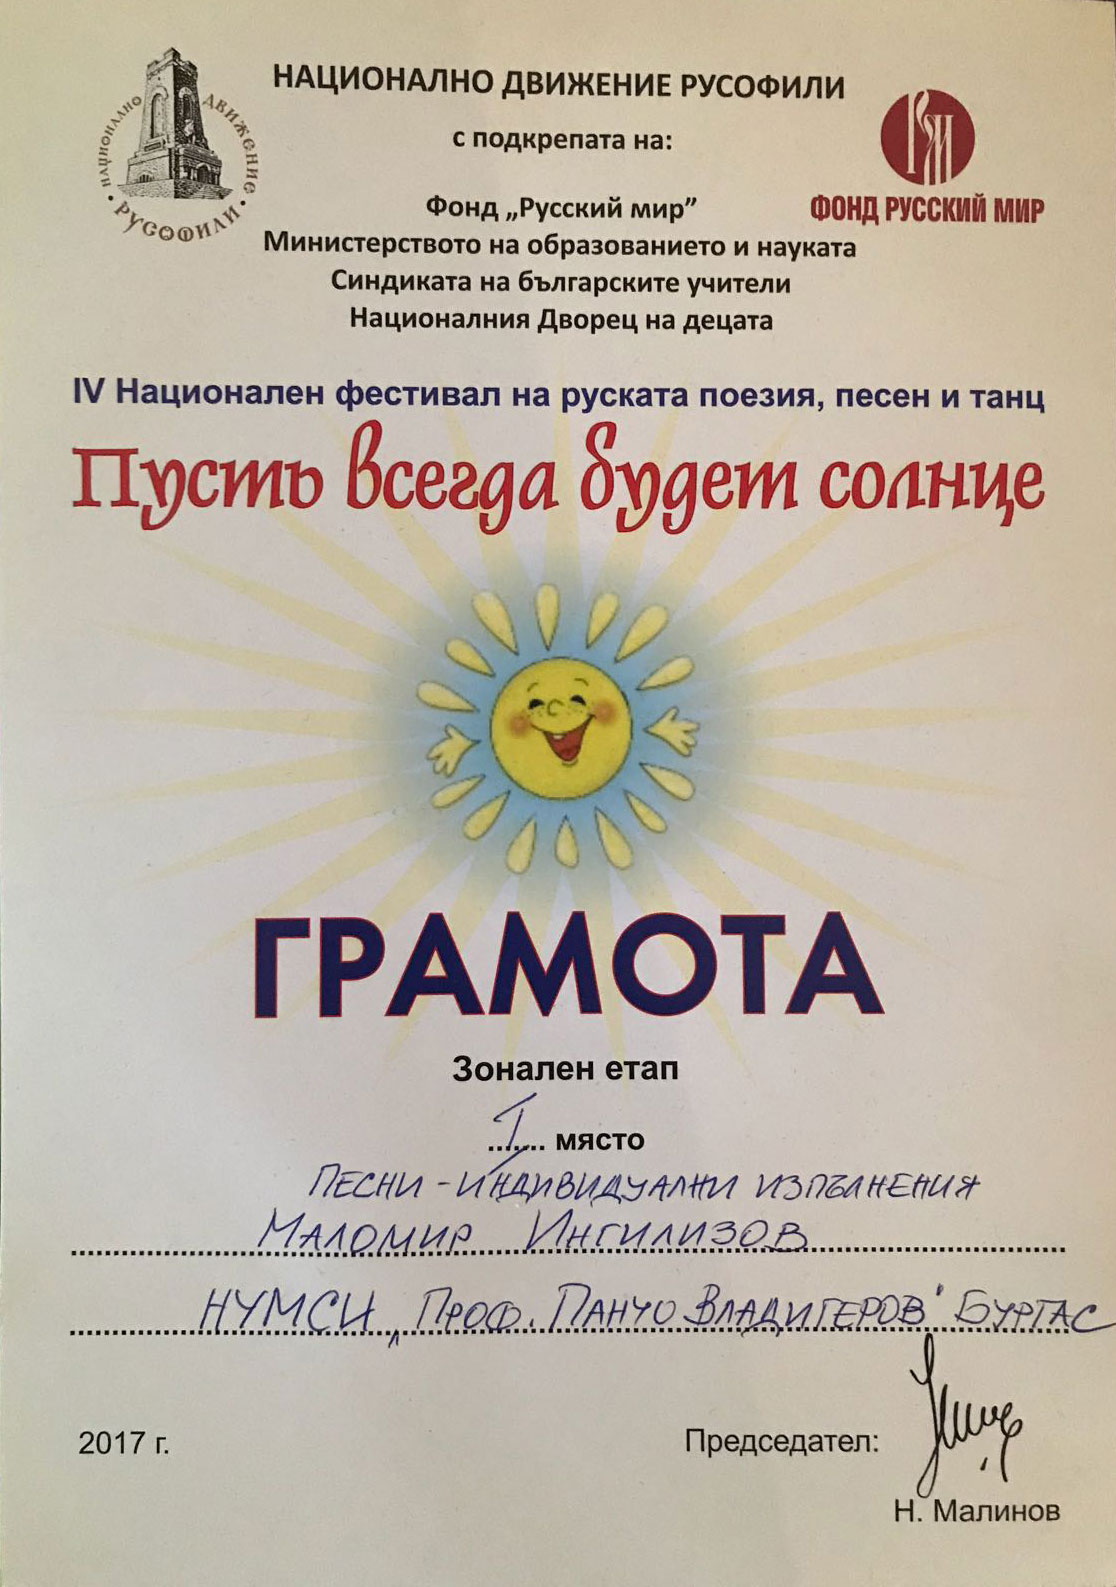 НАЦИОНАЛНО ДВИЖЕНИЕ РУСОФИЛИ
НАЦИОНАЛНО ДВИЖЕНИЕ • РУСОФИЛИ •
с подкрепата на:
ФОНД РУССКИЙ МИР
Фонд „Русский мир”
Министерството на образованието и науката
Синдиката на българските учители
Националния Дворец на децата
IV Национален фестивал на руската поезия, песен и танц
Пусть всегда будет солнце
ГРАМОТА
Зонален етап
...I... място
ПЕСНИ - ИНДИВИДУАЛНИ ИЗПЪЛНЕНИЯ
МАЛОМИР ИНГИЛИЗОВ
НУМСИ „ПРОФ. ПАНЧО ВЛАДИГЕРОВ" БУРГАС
2017 г.
Председател:
Н. Малинов